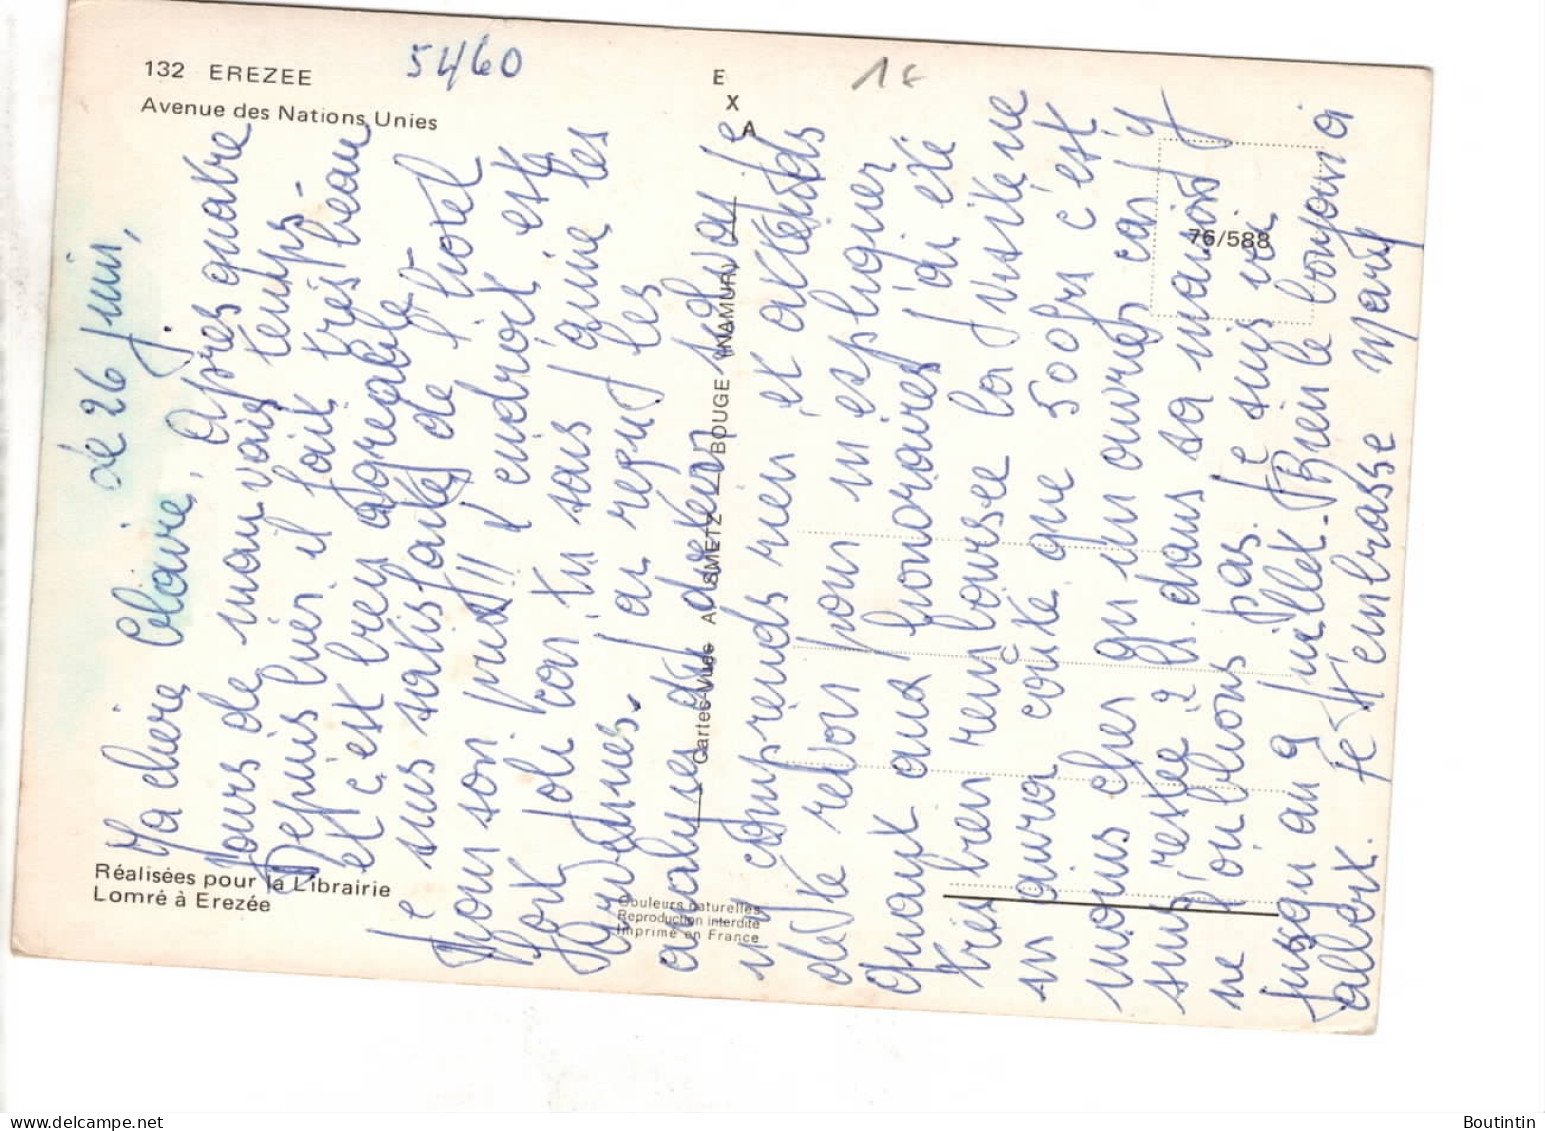 132 EREZEE
Avenue des Nations Unies
5460
1€
E
X
A
76/588
Réalisées pour la Librairie
Lomré à Erezée
Cartes-Vues A. SMETZ — BOUGE (NAMUR)
Couleurs naturelles
Reproduction interdite
Imprimé en France
de 26 juin,
Ma chère Claire, Après quatre
jours de mauvais temps -
Depuis hier il fait très beau
et c'est bien agréable -
Je suis satisfaite de l'hotel
pour son prix !! l'endroit est
fort joli car tu sais j'aime les
Ardennes. J'ai reçu les
analyses du docteur je
n'y comprends rien et attends
de te revoir pour m'expliquer
Quant aux honoraires j'ai été
très bien remboursée la visite ne
m'aura coûté que 500frs c'est
moins cher qu'un ouvrier car j'y
suis restée 2 h. dans sa maison
ne l'oublions pas. Je suis ici
jusqu'au 9 juillet. Bien le bonjour à
Albert. Je t'embrasse Mary